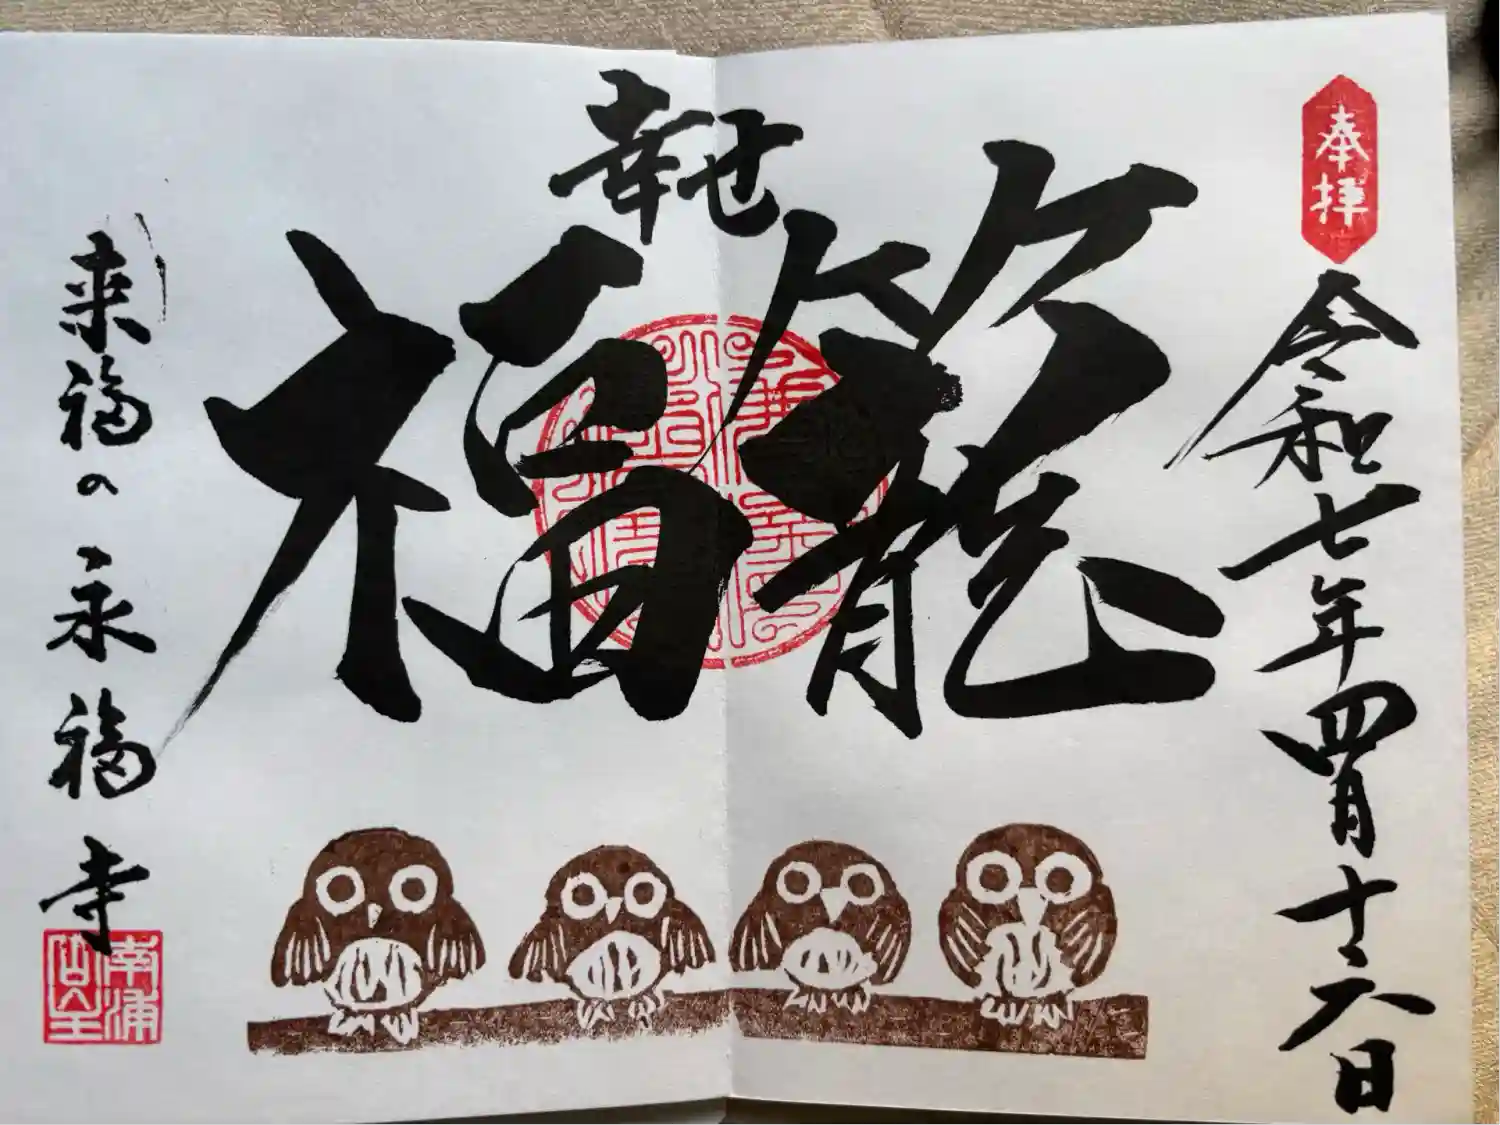 奉拝
令和七年四月十六日
幸せ
福籠
来福の永福寺